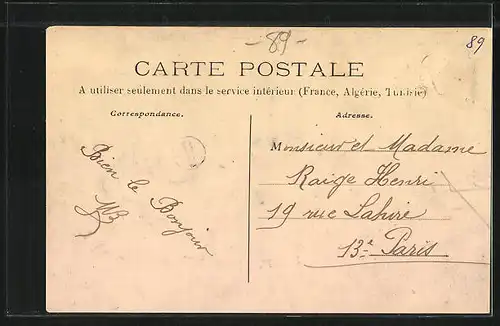 -89-
89
CARTE POSTALE
A utiliser seulement dans le service intérieur (France, Algérie, Tunisie)
Correspondance.
Adresse.
Bien le Bonjour
Monsieur et Madame
Raige Henri
19 rue Lahire
13e Paris